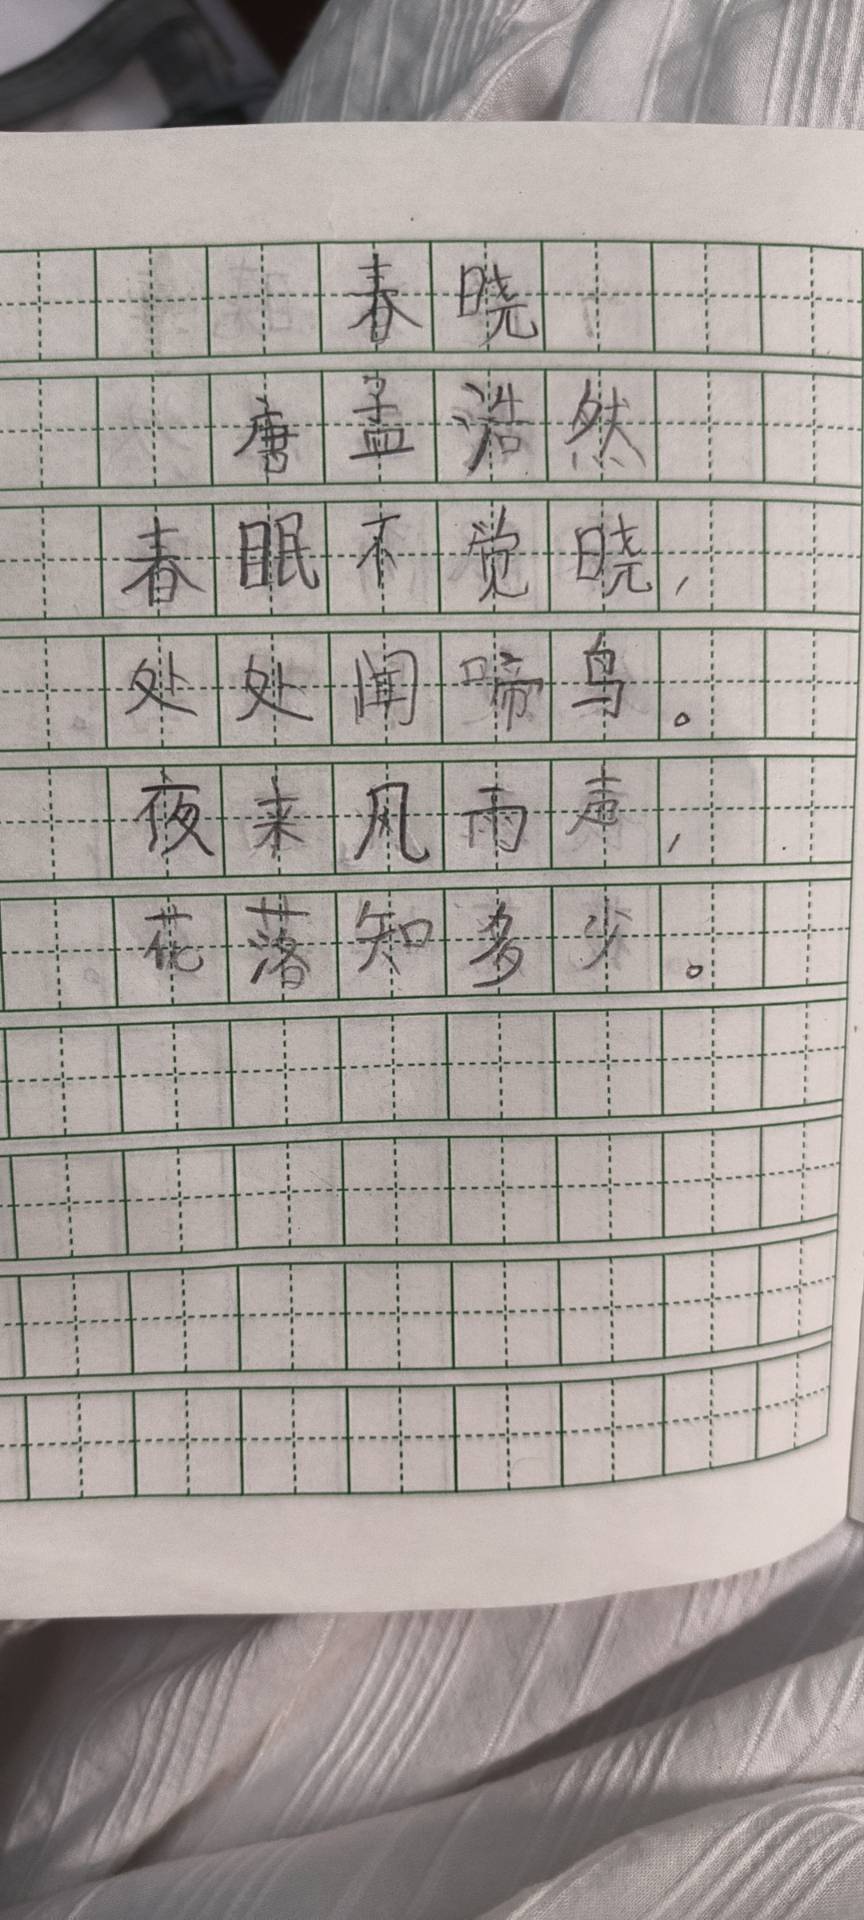 春晓
唐孟浩然
春眠不觉晓，
处处闻啼鸟。
夜来风雨声，
花落知多少。